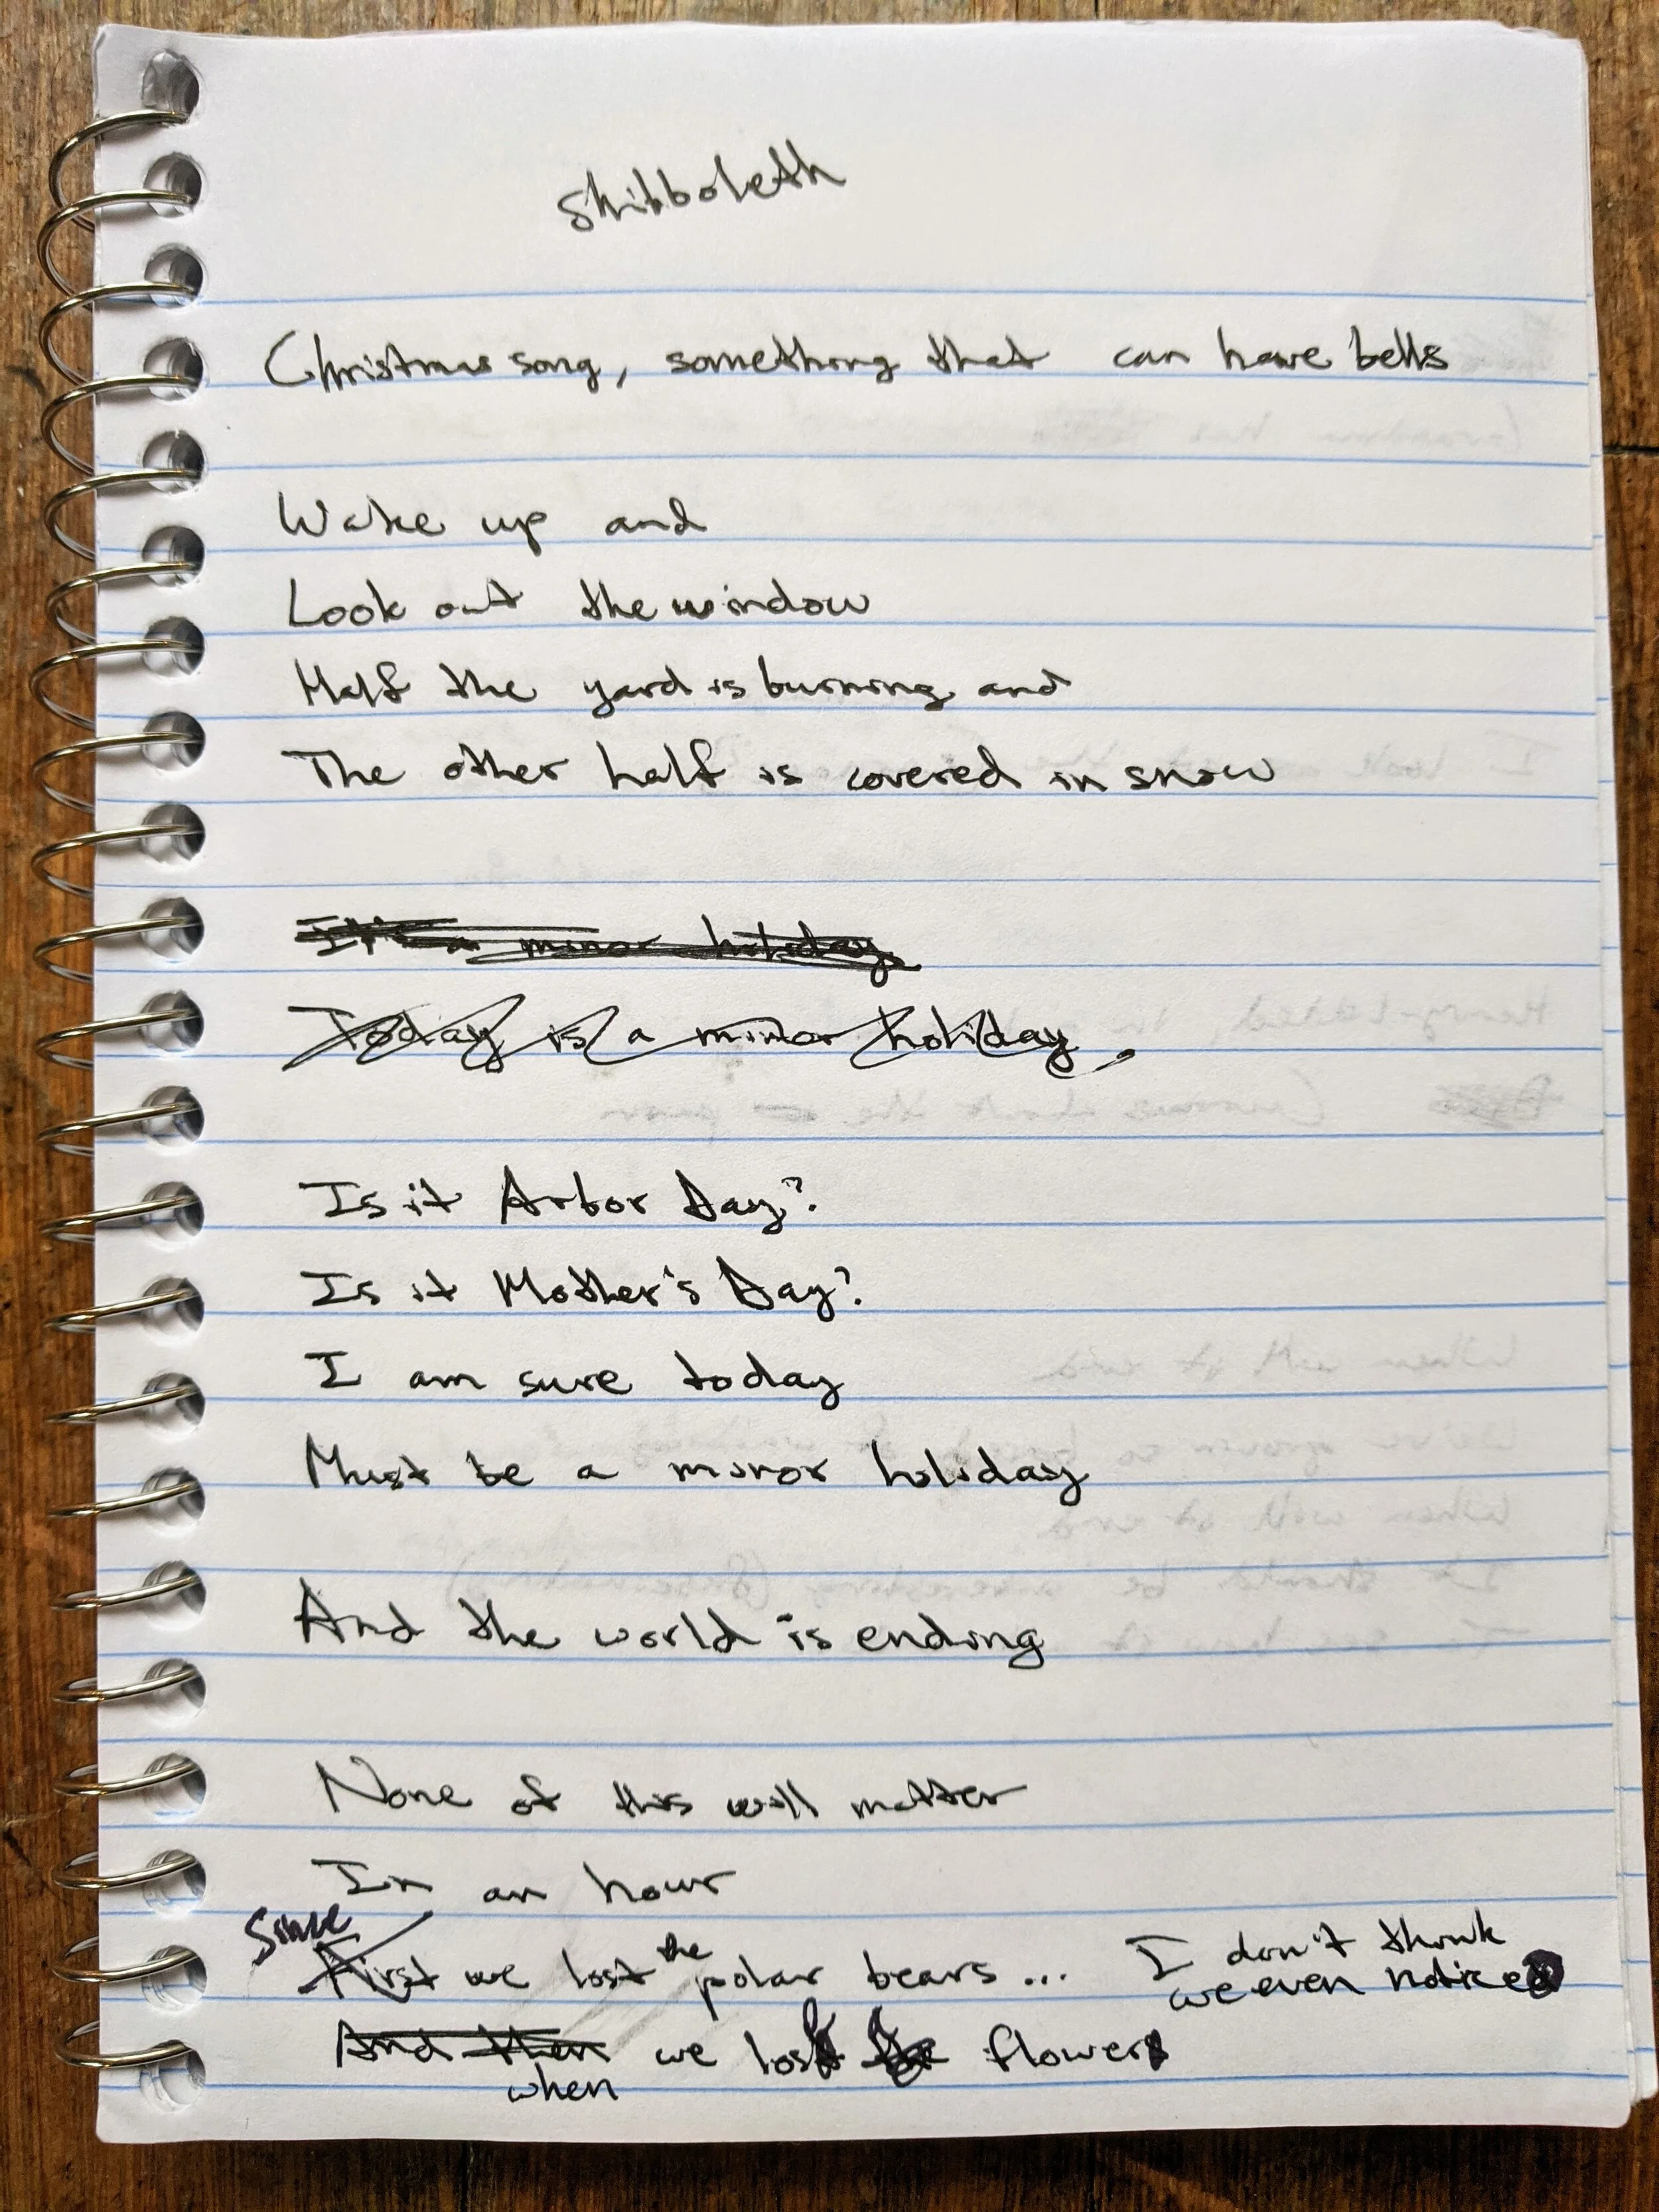 Shibboleth
Christmas song, something that can have bells
Wake up and
Look out the window
Half the yard is burning and
The other half is covered in snow
It's a minor holiday
Today is a minor holiday,
Is it Arbor Day?
Is it Mother's Day?
I am sure today
Must be a minor holiday
And the world is ending
None of this will matter
In an hour
Since
First we lost the polar bears... I don't think
we even notice
And then we lost the flowers
when